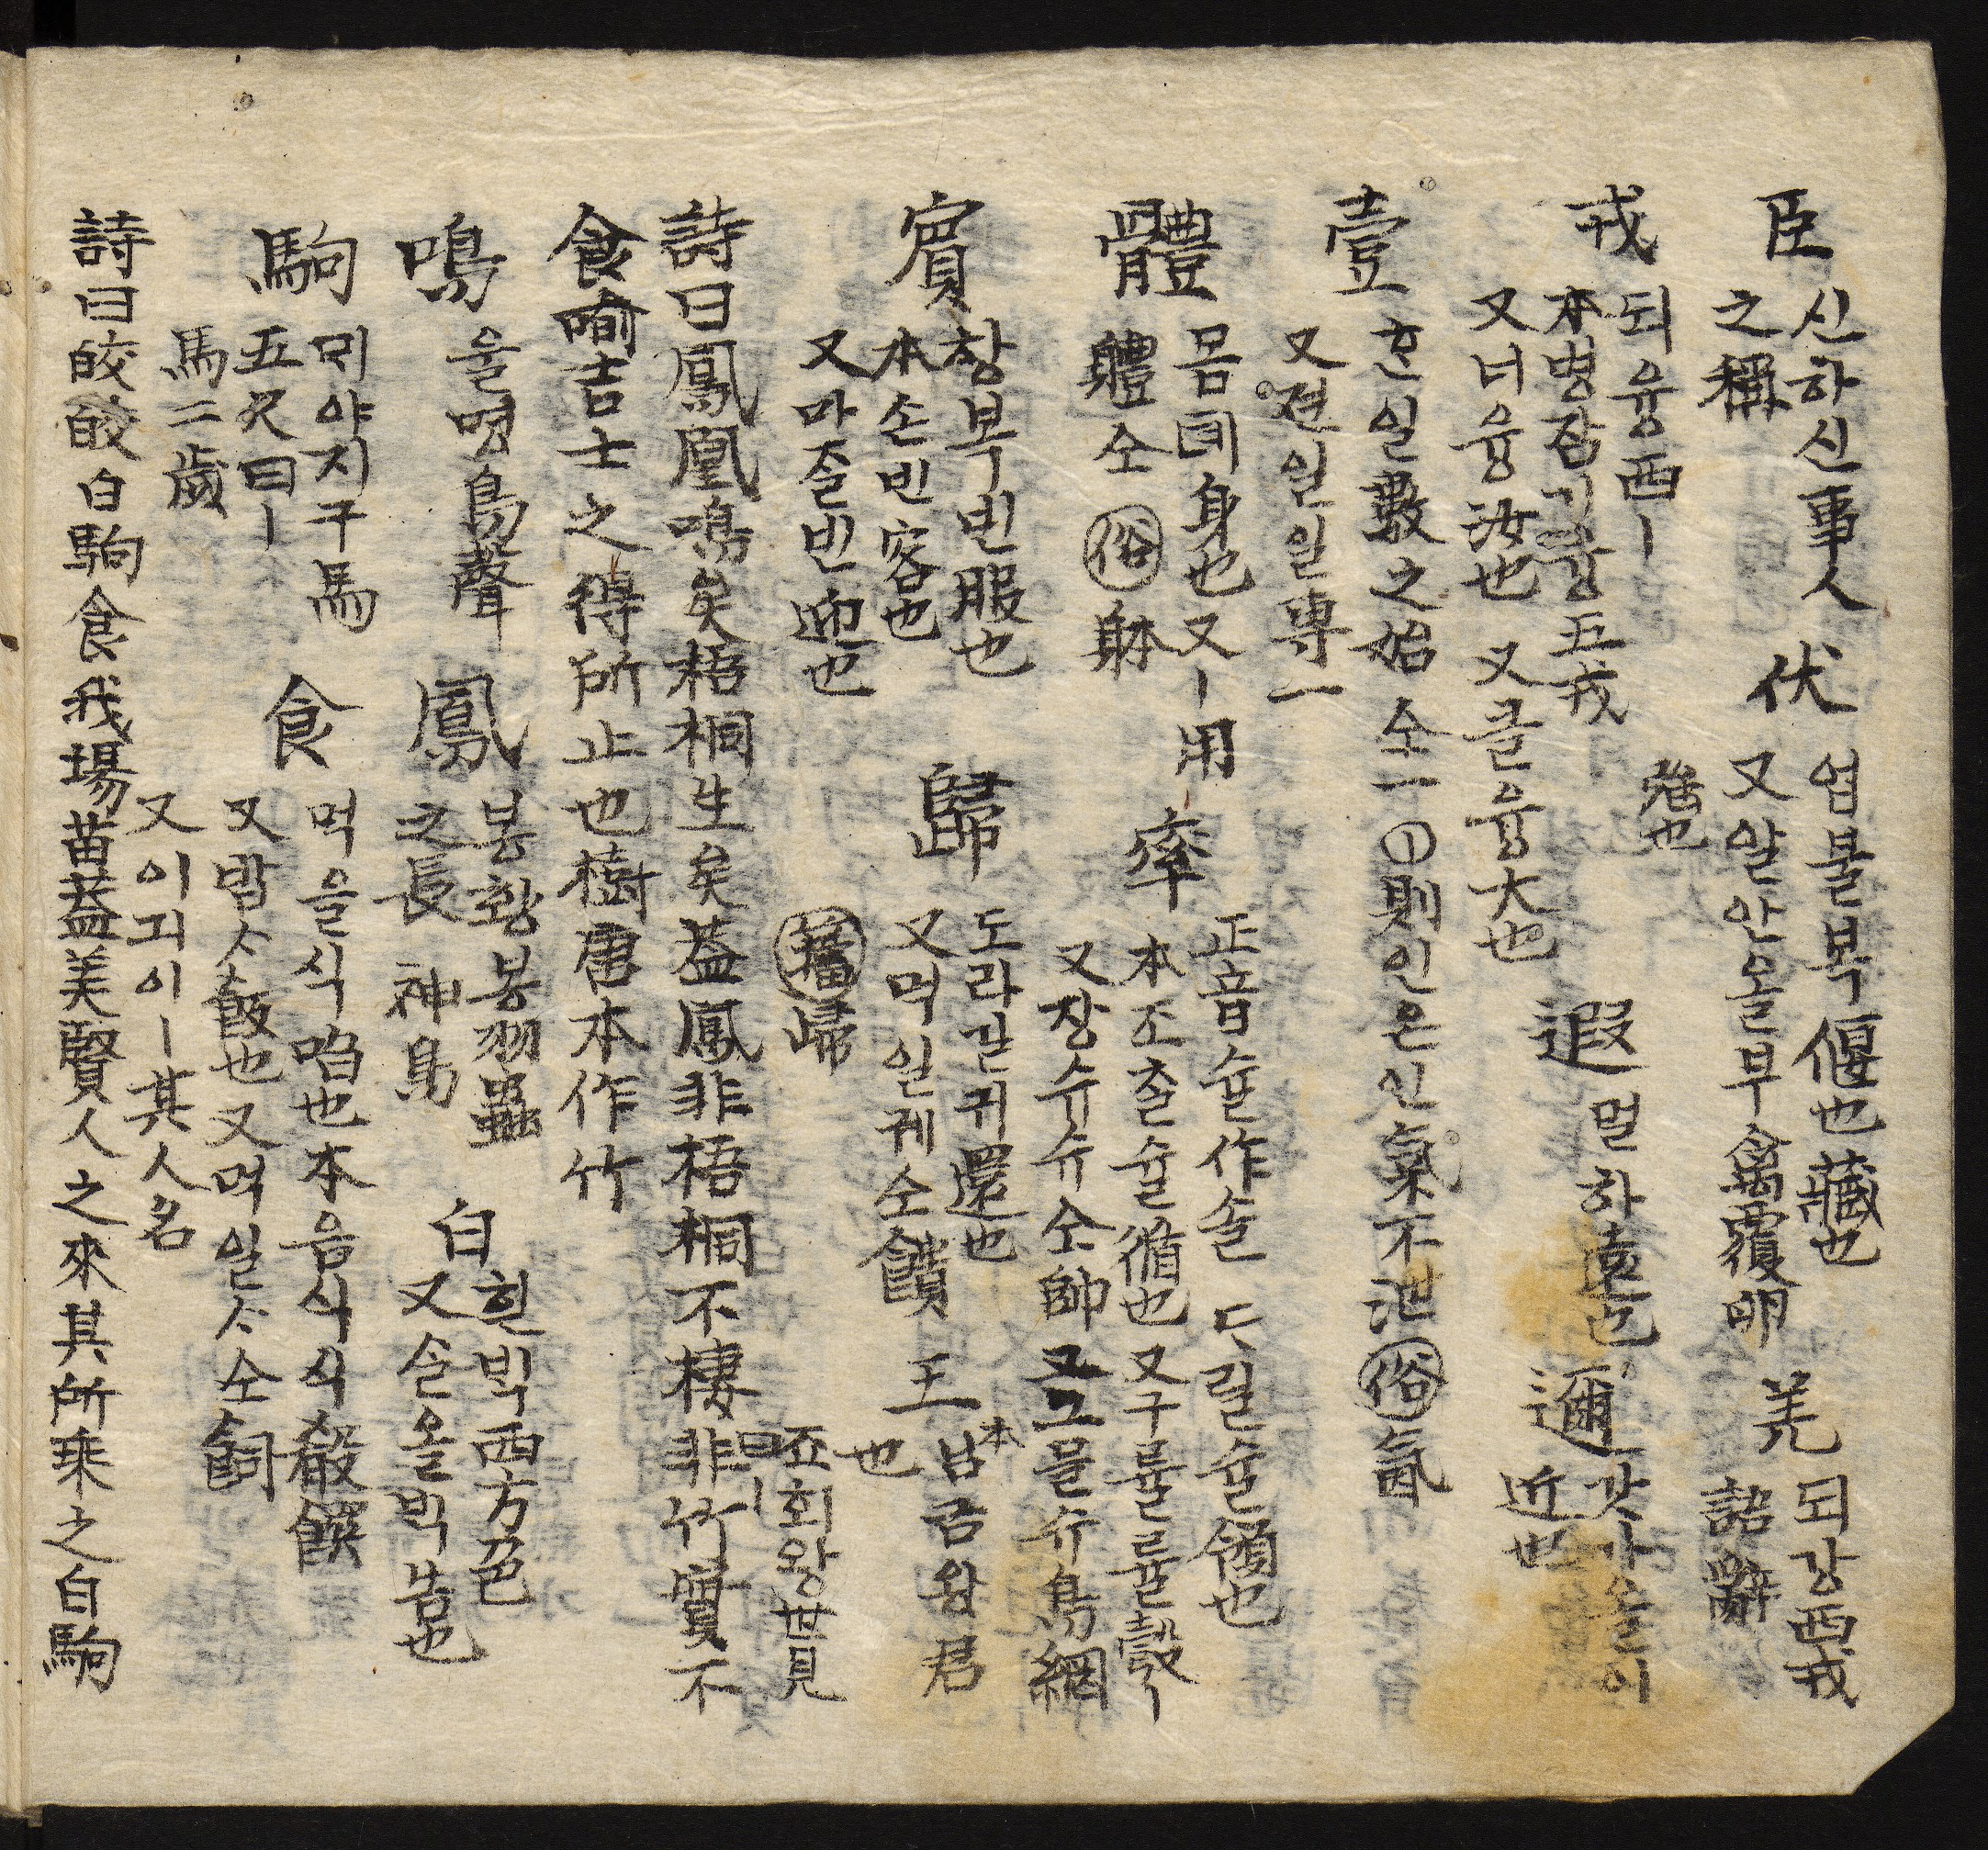 臣 신하신事人
之稱
伏 업블복偃也藏也
又알안올부禽覆卵
羌 되강西戎
戎 되융西ㅣ
本병잠기융五戎
又너융汝也 又클융大也
遐 멀하遠也
邇 갓가올이
近也
壹 흔일數之始소一
又젼일일專一
體 몸톄身也又ㅣ用
軆소 俗 躰
率 正音슐作솔 드릴슐領也
本조촐슐循也又구률률彀ㅣ
又장슈슈소帥又그믈슈鳥網
賓 항복빈服也
本손빈客也
又마즐빈迎也
歸 도라갈귀還也
又먹일궤소饋
籒 歸
王 本 님금왕君
也
詩曰鳳凰鳴矣梧桐生矣蓋鳳非梧桐不棲非竹實不
食喻吉士之得所止也樹唐本作竹
鳴 울명鳥聲
鳳 봉황봉羽蟲
之長 神鳥
白 흰빅西方色
又솔올빅告也
駒 ᄆᆡ야지구馬
五尺曰ㅣ
馬二歲
食 먹을식啗也本음식식殽饌
又밥ᄉᆞ飯也又먹일ᄉᆞ소飼
又이긔이ㅣ其人名
詩曰皎皎白駒食我場苗蓋美賢人之來其所乘之白駒